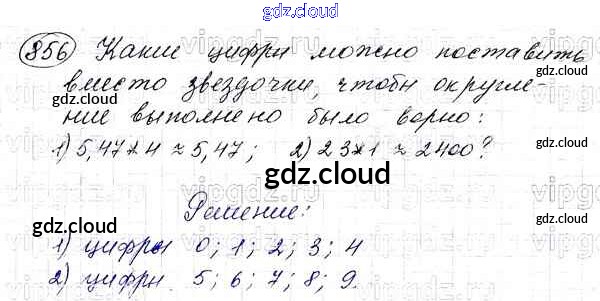 gdz.cloud
856 Какие цифры можно поставить
вместо звездочки, чтобы округле-
ние выполнено было верно:
1) 5,47*4 ≈ 5,47; 2) 23*1 ≈ 2400?
Решение:
1) цифры 0; 1; 2; 3; 4
2) цифры 5; 6; 7; 8; 9.
gdz.cloud
gdz.cloud
gdz.cloud
gdz.cloud
gdz.cloud
gdz.cloud
gdz.cloud